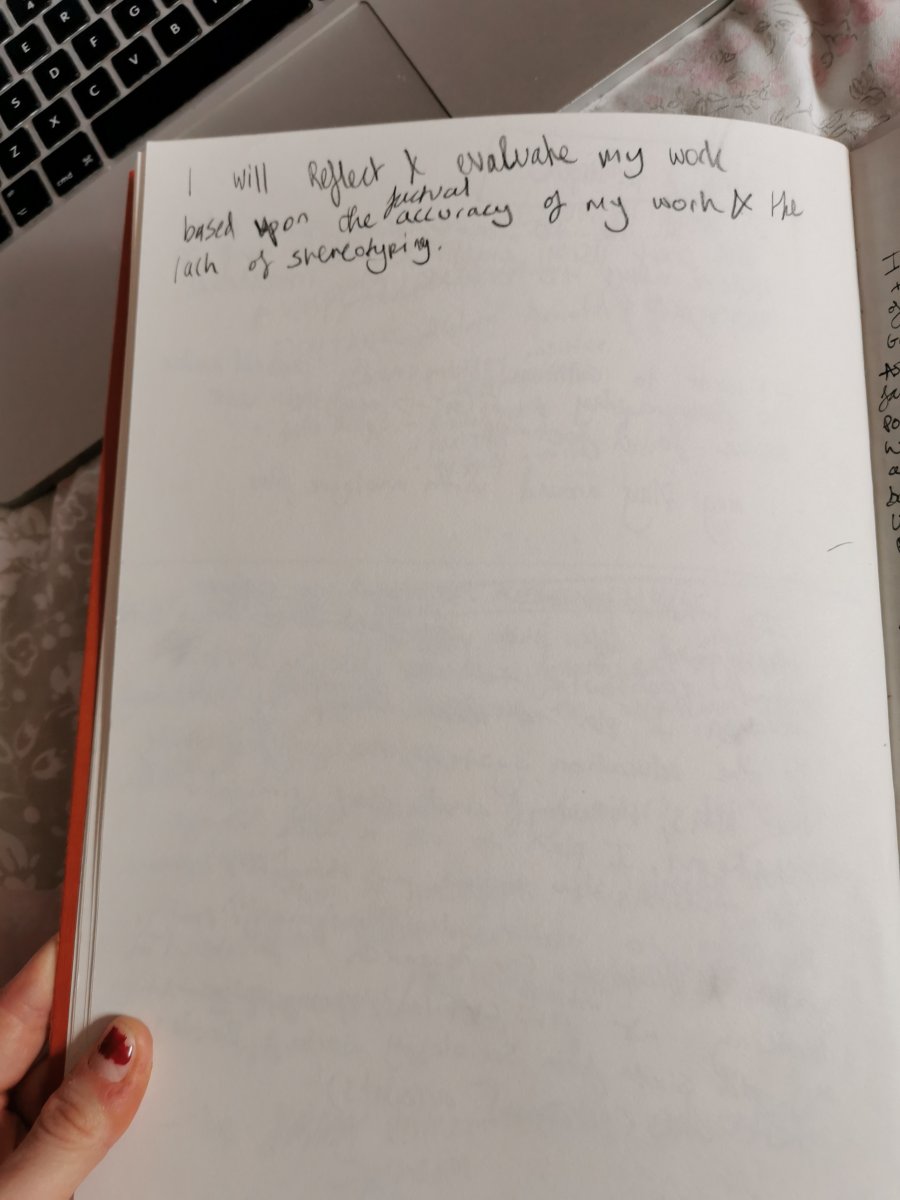 4
E R
S D F G
Z X C V B
cmd ⌘
⌥
I will Reflect & evaluate my work
based upon the factual accuracy of my work & the
lack of stereotyping.